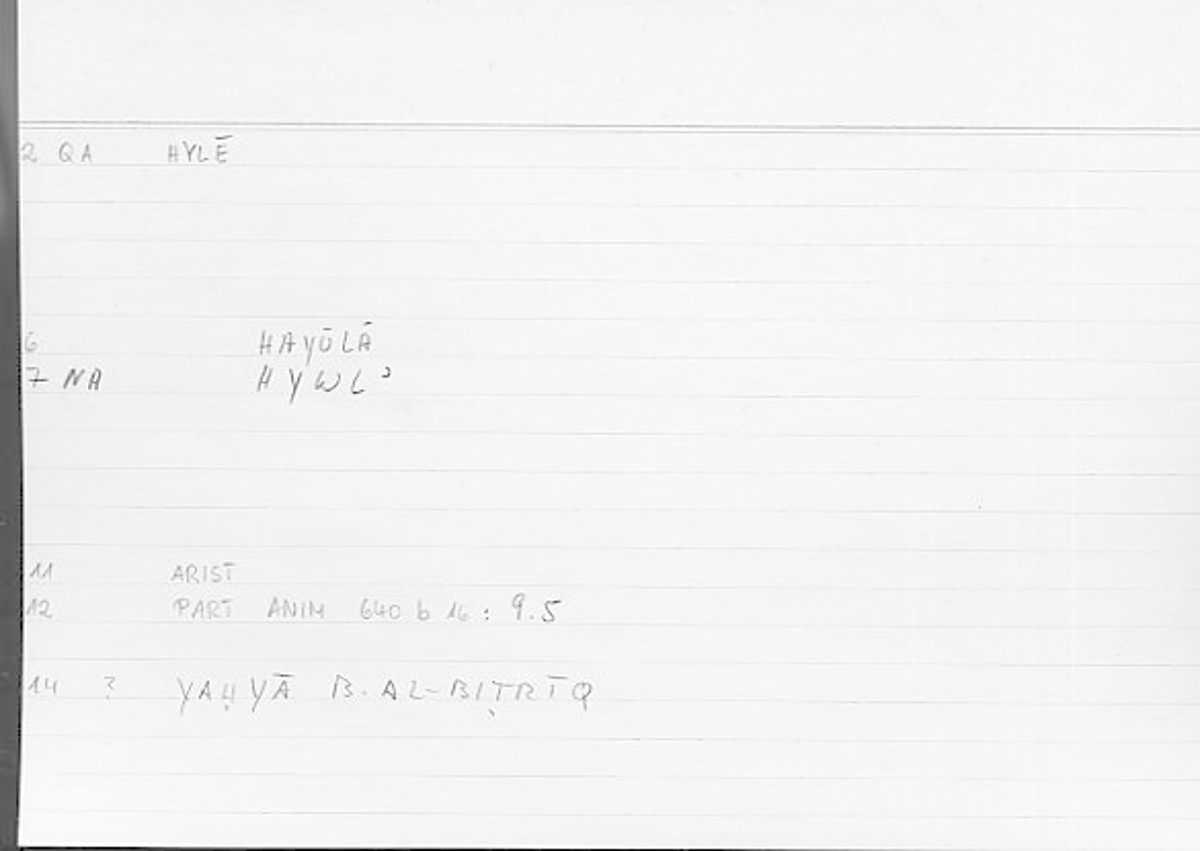 2 QA HYLĒ
6 HAYŪLĀ
7 NA HYWLʾ
11 ARIST
12 PART ANIM 640 b 16 : 9.5
14 ? YAḤYĀ B. AL-BIṬRĪQ